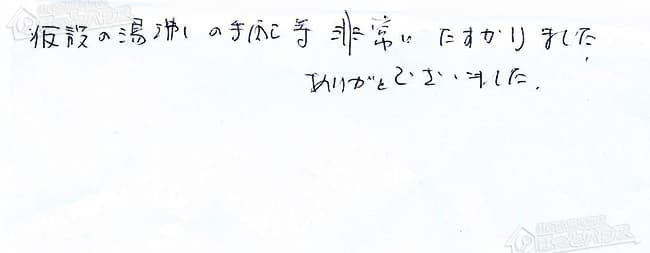 仮設の湯沸しの手配等 非常に たすかりました
ありがとございました.